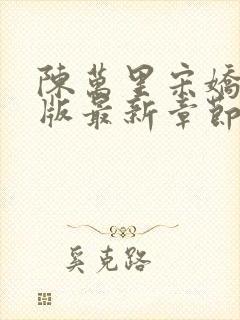 陳萬里宋嬌
版最新章節
奚克路